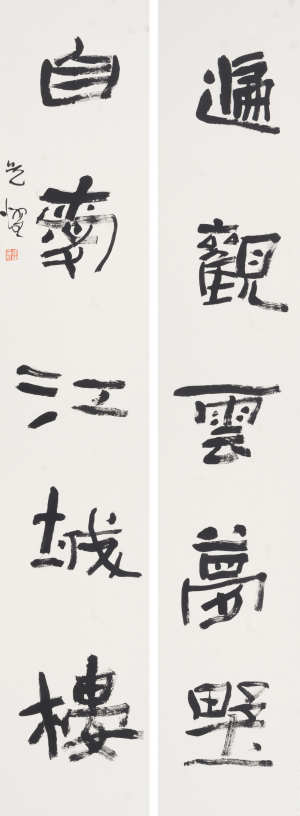 遍觀雲夢野
自愛江城樓